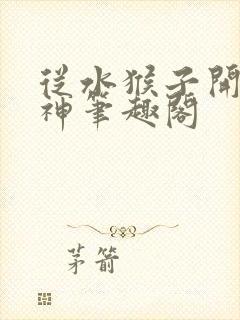 從水猴子開
神筆趣閣
茅箭